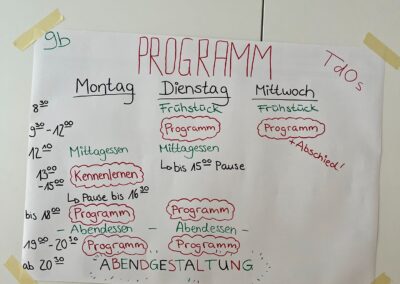 9b
PROGRAMM
TdOs
Montag Dienstag Mittwoch
8³⁰ Frühstück Frühstück
9³⁰ - 12⁰⁰ Programm Programm
+ Abschied!
12¹⁰ Mittagessen Mittagessen
13⁰⁰ - 15⁰⁰ Kennenlernen ↳ bis 15⁰⁰ Pause
↳ Pause bis 16³⁰
bis 18⁰⁰ Programm Programm
- Abendessen - Abendessen -
19⁰⁰ - 20³⁰ Programm Programm
ab 20³⁰ ABENDGESTALTUNG